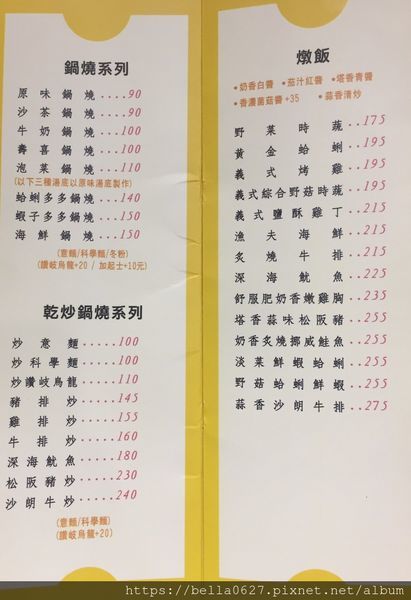 鍋燒系列
原味鍋燒....90
沙茶鍋燒....90
牛奶鍋燒....100
壽喜鍋燒....100
泡菜鍋燒....110
(以下三種湯底以原味湯底製作)
蛤蜊多多鍋燒....140
蝦子多多鍋燒....150
海鮮鍋燒....150
(意麵/科學麵/冬粉)
(讚岐烏龍+20 / 加起士+10元)
乾炒鍋燒系列
炒意麵.....100
炒科學麵.....100
炒讚岐烏龍.....110
豬排炒.....145
雞排炒.....155
牛排炒.....160
深海魷魚.....180
松阪豬炒.....230
沙朗牛炒.....240
(意麵/科學麵)
(讚岐烏龍+20)
燉飯
•奶香白醬 •茄汁紅醬 •塔香青醬
•香濃菌菇醬+35 •蒜香清炒
野菜時蔬..175
黃金蛤蜊..195
義式烤雞..195
義式綜合野菇時蔬..195
義式鹽酥雞丁..215
漁夫海鮮..215
炙燒牛排..215
深海魷魚..225
舒服肥奶香嫩雞胸..235
塔香蒜味松阪豬..255
奶香炙燒挪威鮭魚..255
淡菜鮮蝦蛤蜊..255
野菇蛤蜊鮮蝦..255
蒜香沙朗牛排..275
https://bella0627.pixnet.net/album